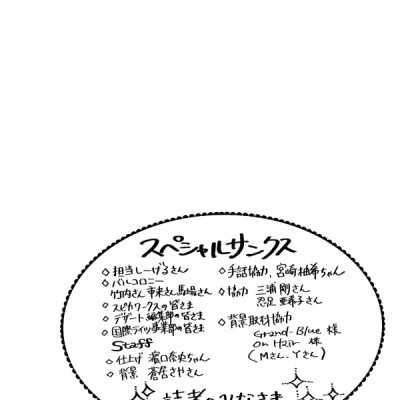 スペシャルサンクス
◇担当しーげるさん
◇バルコロニー
竹内さん 市来さん 馬場さん
◇スピカワークスの皆さま
◇デザート編集部の皆さま
◇国際ライツ事業部の皆さま
Staff
◇仕上げ 濱口奈央ちゃん
◇背景 蒼奈さやさん
◇手話協力、宮崎柚希ちゃん
◇協力 三浦剛さん
忍足亜希子さん
◇背景取材協力
Grand-Blue 様
On Hair 様
(Mさん、Yさん)
読者のみなさま